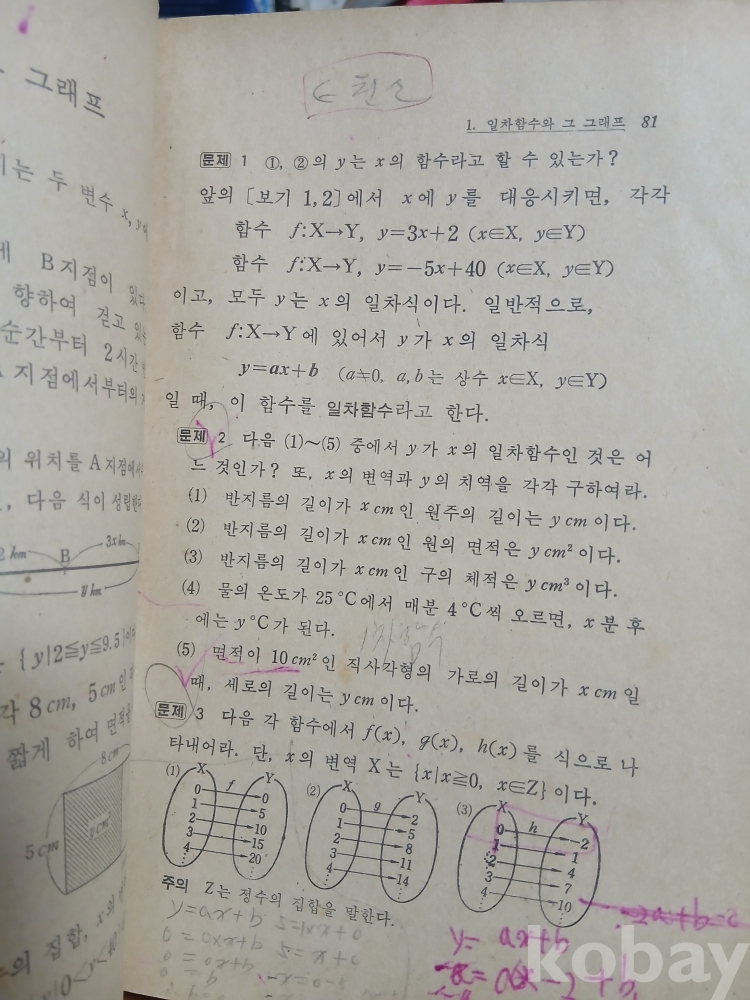 그래프
는 두 변수 x, y
B지점이 있다
향하여 걷고 있
순간부터 2시간
지점에서부터의
의 위치를 A지점에서
, 다음 식이 성립한다
2 km B 3x km
y km
{y|2≦y≦9.5}
각 8 cm, 5 cm인
짧게 하여 면적을
8 cm
5 cm
y cm²
의 집합, x의
∈ 원소
1. 일차함수와 그 그래프 81
문제 1 ①, ②의 y는 x의 함수라고 할 수 있는가?
앞의 [보기 1, 2]에서 x에 y를 대응시키면, 각각
함수 f:X→Y, y=3x+2 (x∈X, y∈Y)
함수 f:X→Y, y=−5x+40 (x∈X, y∈Y)
이고, 모두 y는 x의 일차식이다. 일반적으로,
함수 f:X→Y에 있어서 y가 x의 일차식
y=ax+b (a≠0, a, b는 상수 x∈X, y∈Y)
일 때, 이 함수를 일차함수라고 한다.
문제 2 다음 (1)~(5) 중에서 y가 x의 일차함수인 것은 어
느 것인가? 또, x의 변역과 y의 치역을 각각 구하여라.
(1) 반지름의 길이가 x cm인 원주의 길이는 y cm이다.
(2) 반지름의 길이가 x cm인 원의 면적은 y cm²이다.
(3) 반지름의 길이가 x cm인 구의 체적은 y cm³이다.
(4) 물의 온도가 25 °C에서 매분 4 °C씩 오르면, x분 후
에는 y °C가 된다.
1차함수
(5) 면적이 10 cm²인 직사각형의 가로의 길이가 x cm일
때, 세로의 길이는 y cm이다.
문제 3 다음 각 함수에서 f(x), g(x), h(x)를 식으로 나
타내어라. 단, x의 변역 X는 {x|x≧0, x∈Z}이다.
(1) X f Y
0 0
1 5
2 10
3 15
4 20
(2) X g Y
0 2
1 5
2 8
3 11
4 14
(3) X h Y
0 −2
1 1
2 4
3 7
4 10
주의 Z는 정수의 집합을 말한다.
y= ax+b
kobay